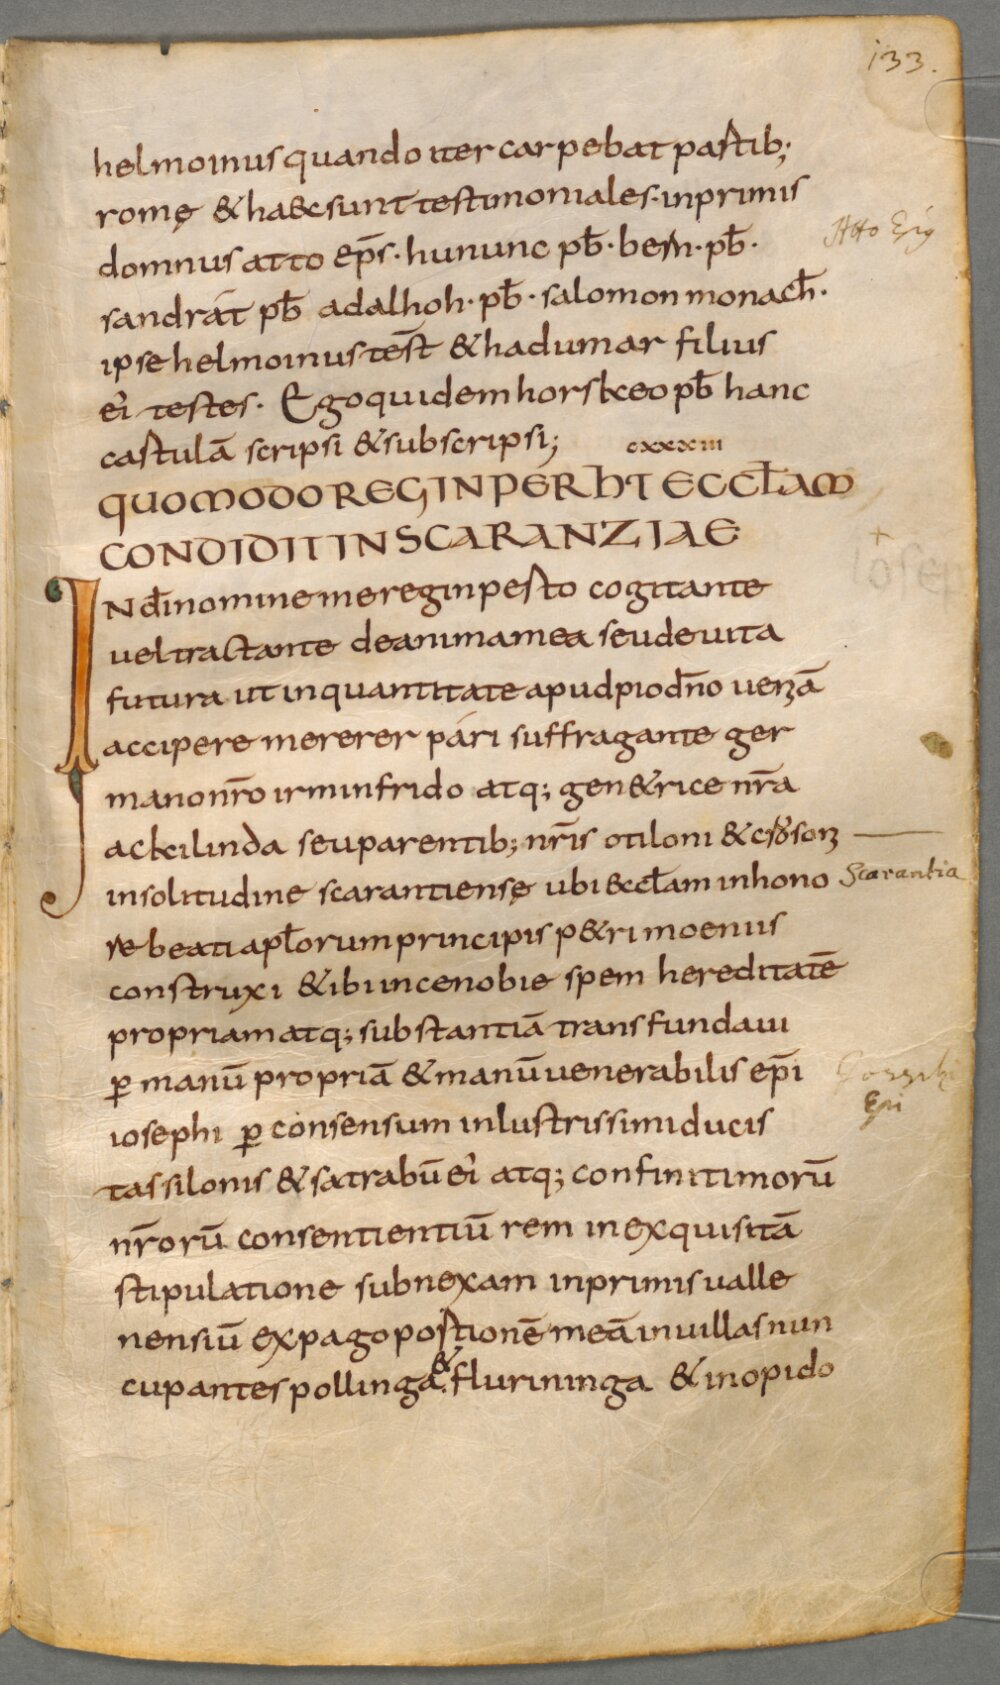 133.
helmoinus quando iter carpebat partib;
romę & haec sunt testimoniales · inprimis
domnus atto ep̄s · hununc pb̄ · bern · pb̄ ·
sandrat pb̄ adalhoh · pb̄ · salomon monach̄ ·
ipse helmoinus test̄ & hadumar filius
ei testes · Ego quidem horskeo pb̄ hanc
castulā scripsi & subscripsi;
cxxxiii
QUOMODO REGINPERHT ECCL̄AM
CONDIDIT IN SCARANZIAE
IN dī nomine me reginpesto cogitante
vel tractante de anima mea seu de vita
futura ut in quantitate apud pio dn̄o veniā
accipere mererer pari suffragante ger
mano nr̄o irminfrido atq; genetrice nr̄a
ackilinda seu parentib; nr̄is otiloni & cros̄on
Atto Eps
in solitudine scarantiensę ubi & eccl̄am in hono
Scarantia
re beati apl̄orum principis p&ri moenius
construxi & ibi in cenobie spem hereditatē
propriam atq; substantiā transfundavi
ꝑ manū propriā & manū venerabilis ep̄i
Epi
iosephi ꝑ consensum inlustrissimi ducis
tassilonis & satrabū ei atq; confinitimorū
nr̄orū consentientiū rem inexquisitā
stipulatione subnexam inprimis valle
nensiū ex pago postionē meā in villas nun
cupantes pollinga & flurininga & in opido